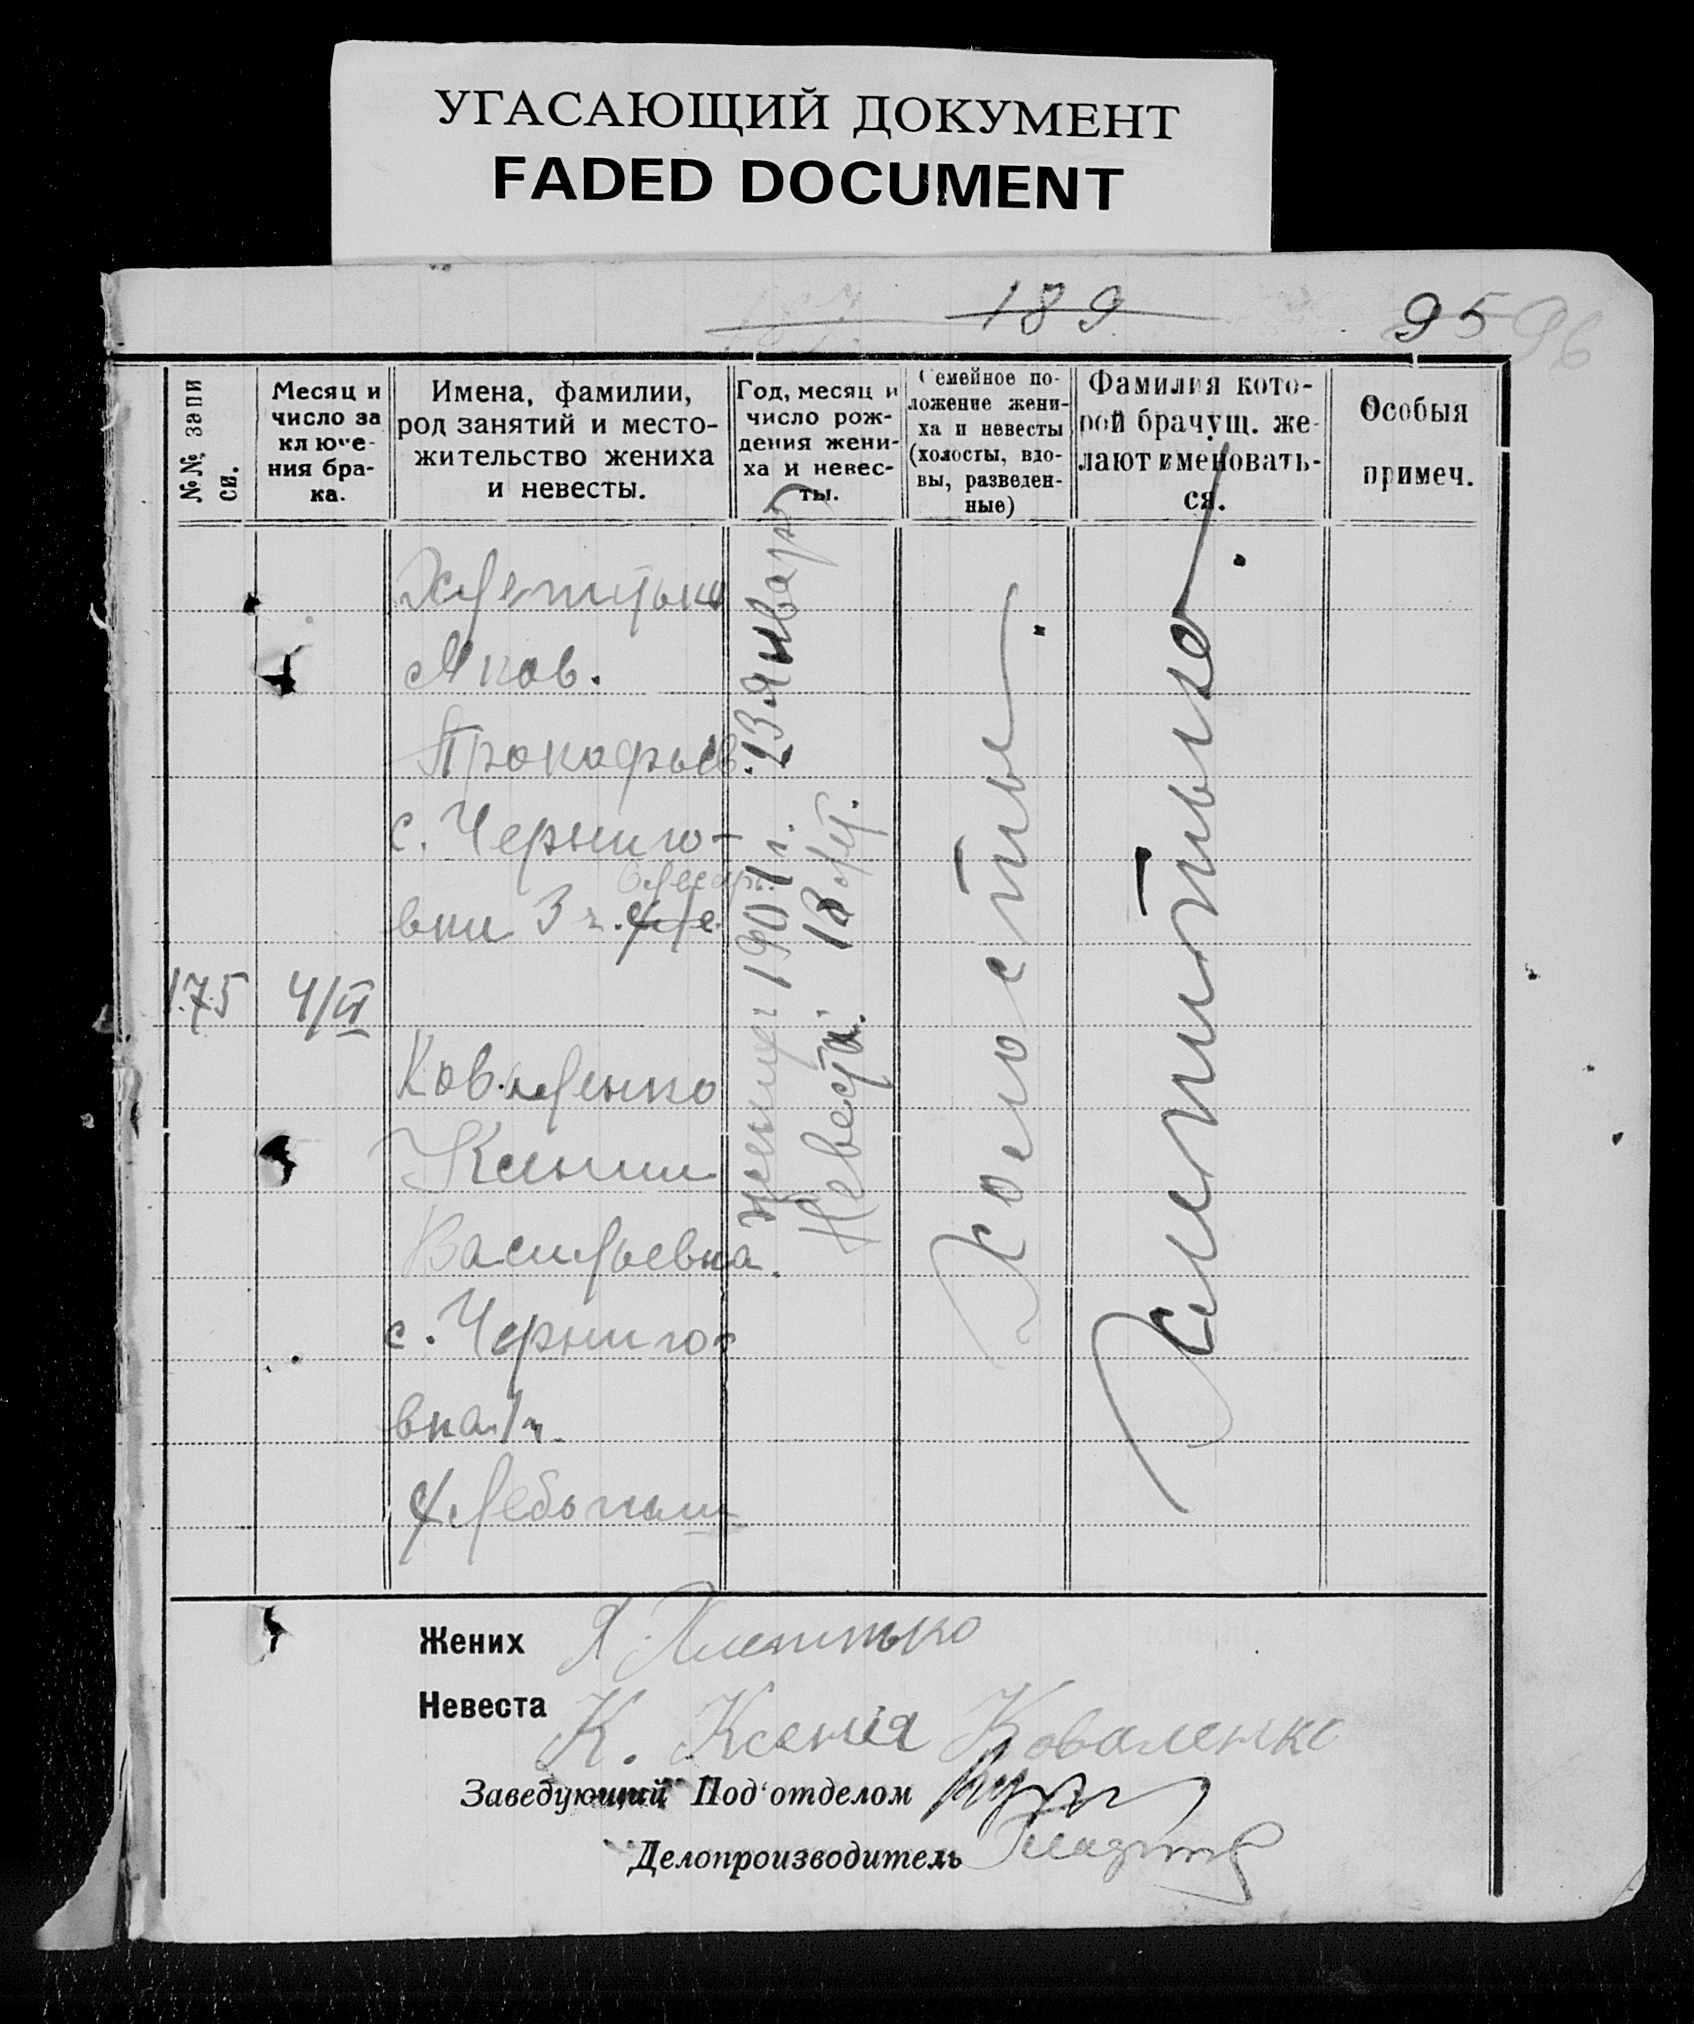 УГАСАЮЩИЙ ДОКУМЕНТ
FADED DOCUMENT
189
95 96
№№ запи
си.
Месяц и
число за
ключе-
ния бра-
ка.
Имена, фамилии,
род занятий и место-
жительство жениха
и невесты.
Год, месяц и
число рож-
дения жени-
ха и невес-
ты.
Семейное по-
ложение жени-
ха и невесты
(холосты, вдо-
вы, разведен-
ные)
Фамилия кото-
рой брачущ. же-
лают именовать-
ся.
Особыя
примеч.
175
Яков.
Прокофьев.
с. Черниго-
вки 3 ч.
Коваленко
Ксения
Васильевна.
с. Черниго-
вка 1 ч.
Жених 1901 г. 23 Января
Невеста. 18 лет.
Холосты.
Жених
Невеста К. Ксенія Коваленко
Заведующий Под'отделом
Делопроизводитель